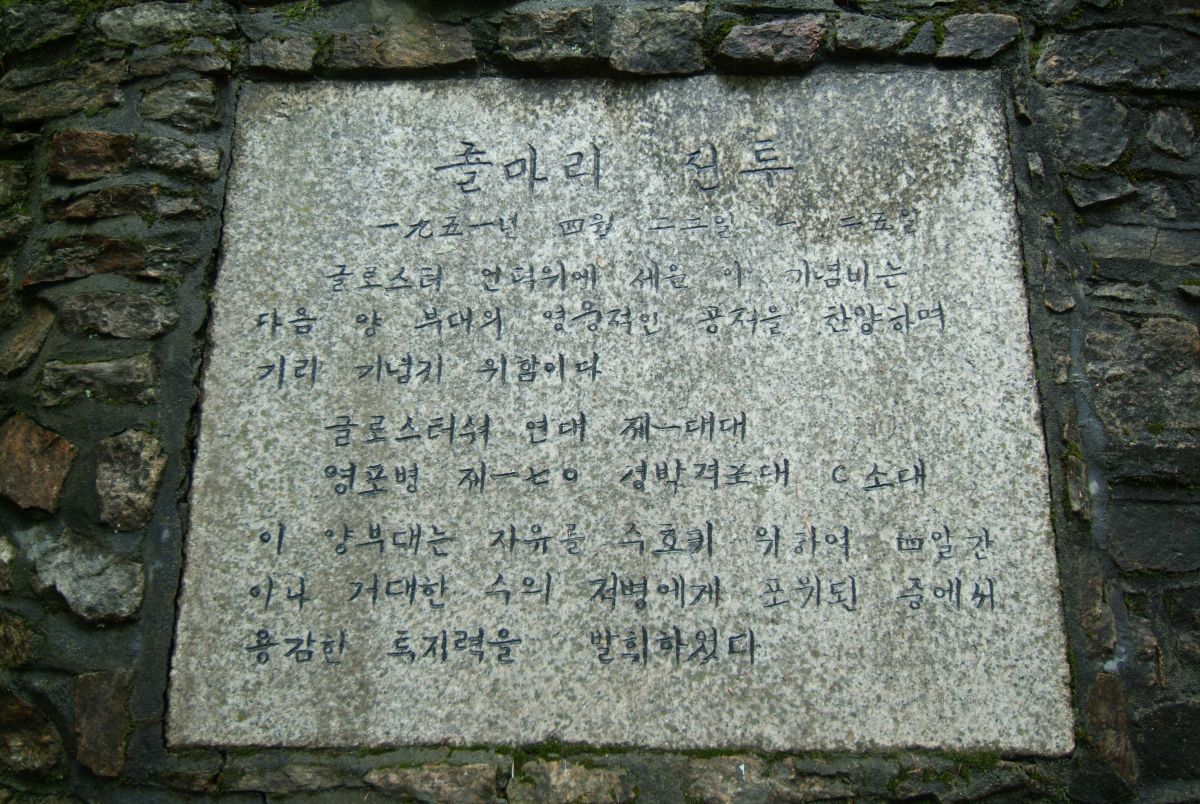 졸마리 전투
一九五一년 四월 二二일 - 二五일
글로스터 언덕위에 세운 이 기념비는
다음 양 부대의 영웅적인 공적을 찬양하며
기리 기념키 위함이다
글로스터쉬 연대 제一대대
영포병 제一七0 성박격포대 C 소대
이 양부대는 자유를 수호키 위하여 四일간
이나 거대한 수의 적병에게 포위된 중에서
용감한 특지력을 발휘하였다